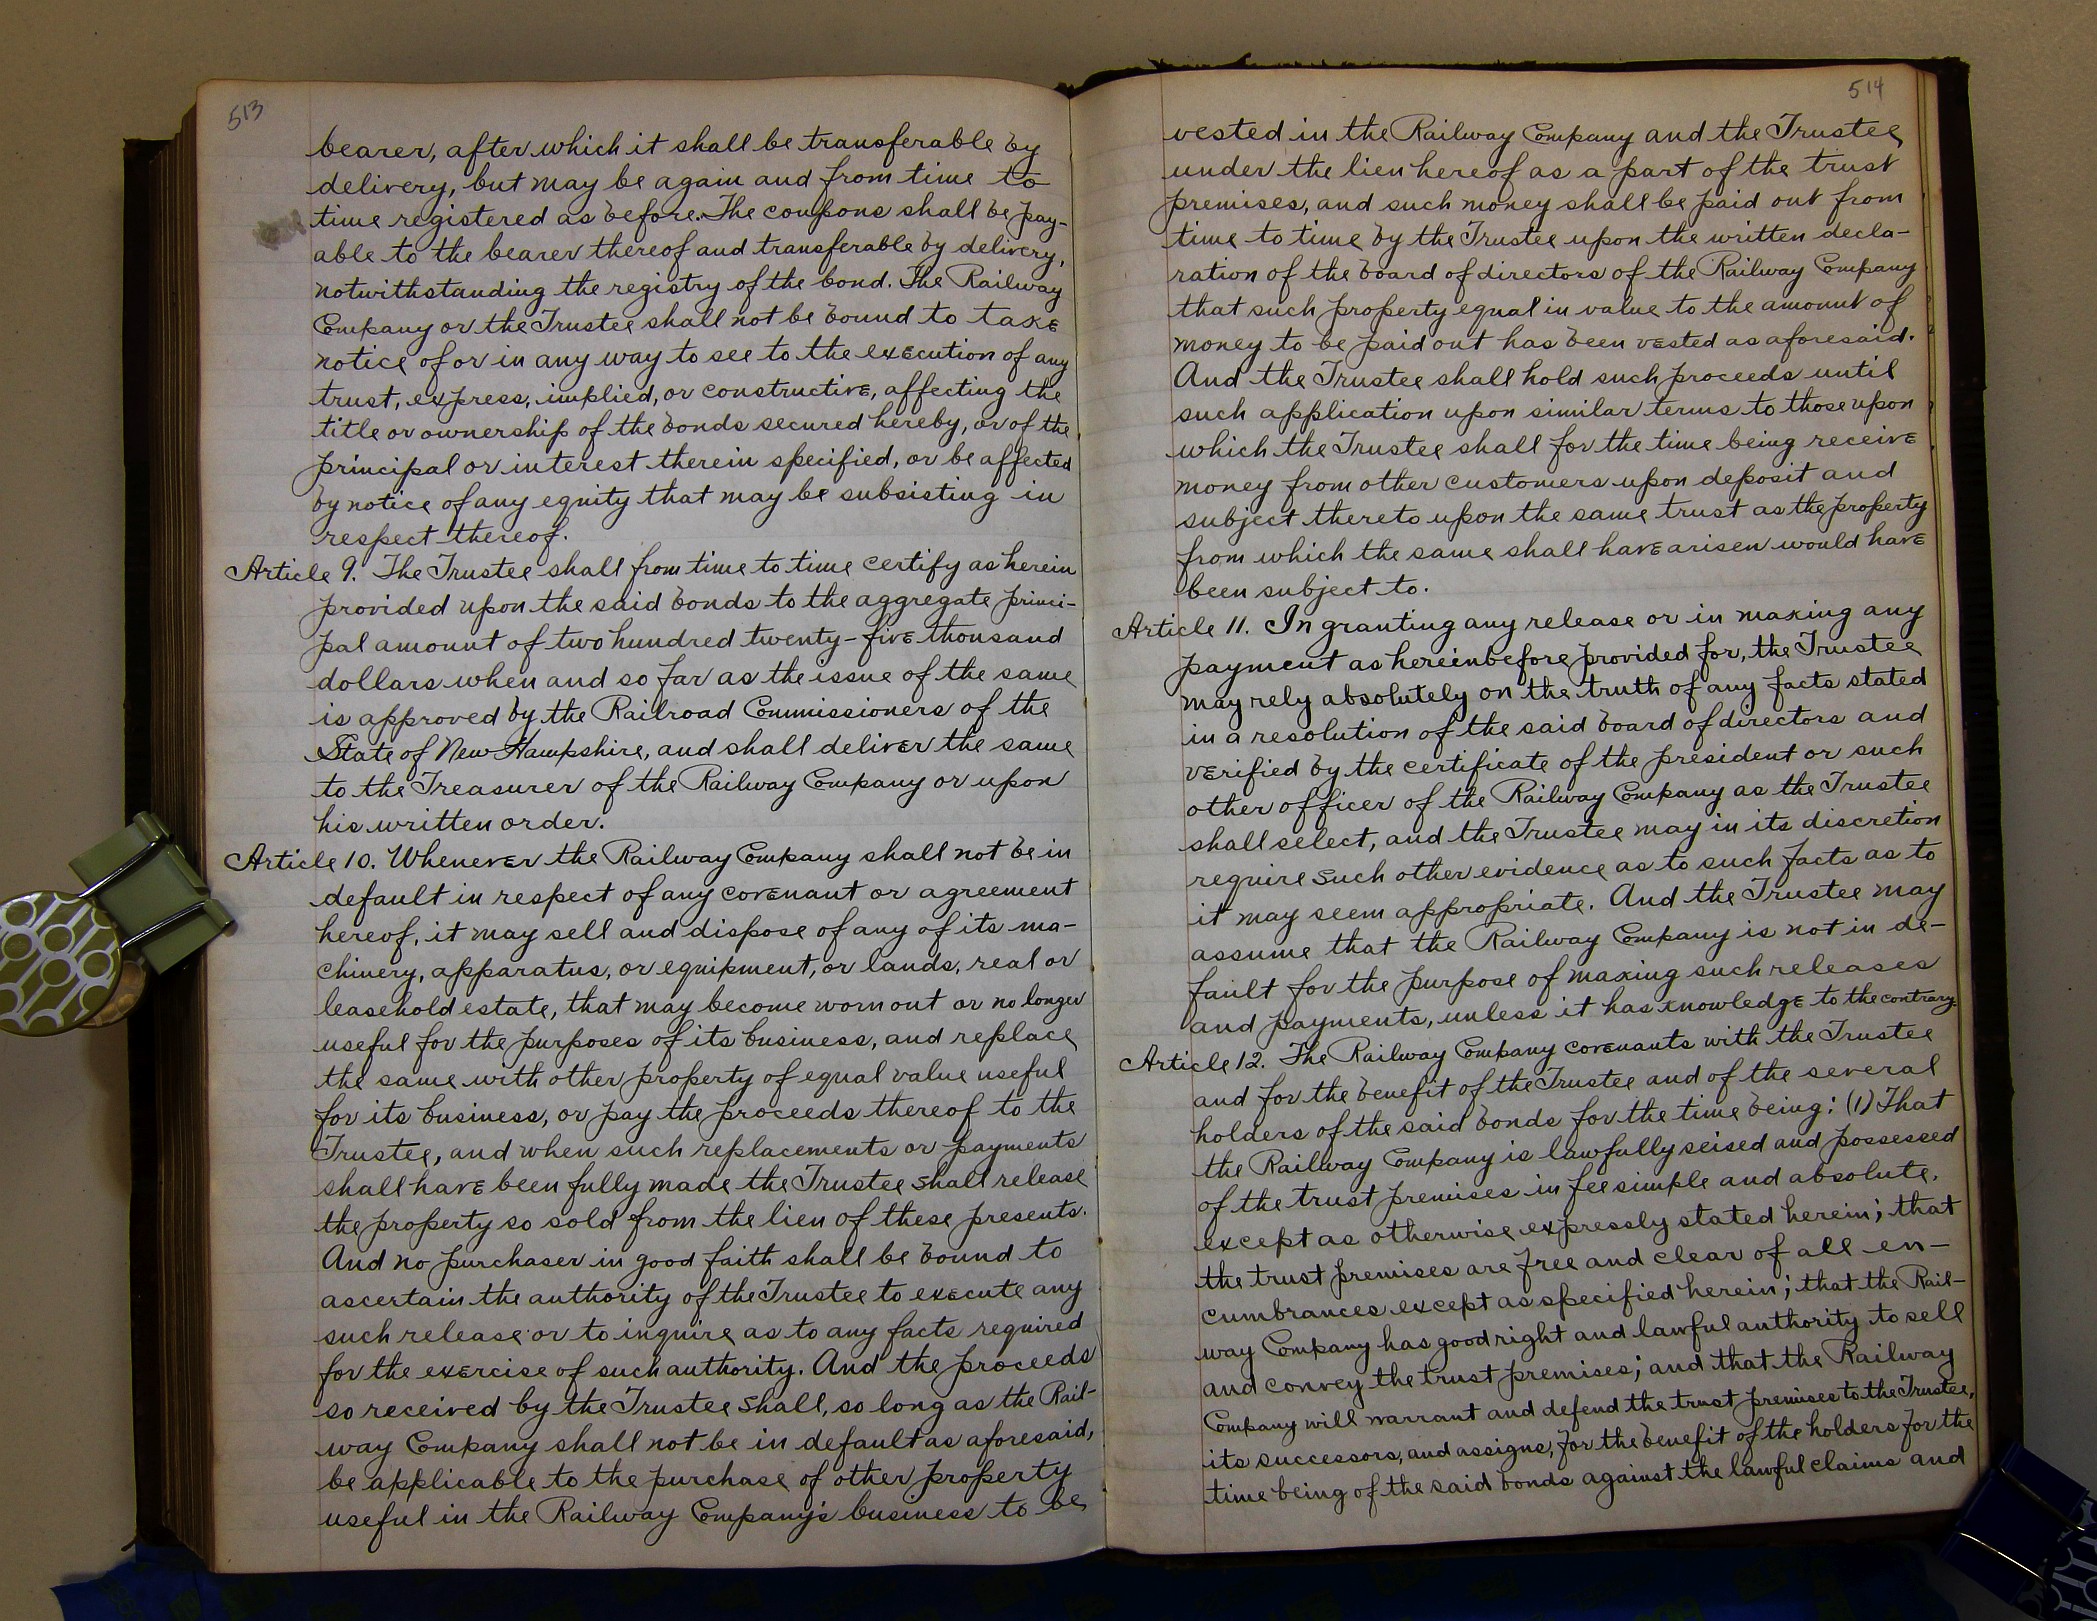 513
bearer, after which it shall be transferable by
delivery, but may be again and from time to
time registered as before. The coupons shall be pay-
able to the bearer thereof and transferable by delivery,
notwithstanding the registry of the bond. The Railway
Company or the Trustee shall not be bound to take
notice of or in any way to see to the execution of any
trust, express, implied, or constructive, affecting the
title or ownership of the bonds secured hereby, or of the
principal or interest therein specified, or be affected
by notice of any equity that may be subsisting in
respect thereof.
Article 9. The Trustee shall from time to time certify as herein
provided upon the said bonds to the aggregate princi-
pal amount of two hundred twenty-five thousand
dollars when and so far as the issue of the same
is approved by the Railroad Commissioners of the
State of New Hampshire, and shall deliver the same
to the Treasurer of the Railway Company or upon
his written order.
Article 10. Whenever the Railway Company shall not be in
default in respect of any covenant or agreement
hereof, it may sell and dispose of any of its ma-
chinery, apparatus, or equipment, or lands, real or
leasehold estate, that may become worn out or no longer
useful for the purposes of its business, and replace
the same with other property of equal value useful
for its business, or pay the proceeds thereof to the
Trustee, and when such replacements or payments
shall have been fully made the Trustee shall release
the property so sold from the lien of these presents.
And no purchaser in good faith shall be bound to
ascertain the authority of the Trustee to execute any
such release or to inquire as to any facts required
for the exercise of such authority. And the proceeds
so received by the Trustee shall, so long as the Rail-
way Company shall not be in default as aforesaid,
be applicable to the purchase of other property
useful in the Railway Company's business to be
514
vested in the Railway Company and the Trustee
under the lien hereof as a part of the trust
premises, and such money shall be paid out from
time to time by the Trustee upon the written decla-
ration of the board of directors of the Railway Company
that such property equal in value to the amount of
money to be paid out has been vested as aforesaid.
And the Trustee shall hold such proceeds until
such application upon similar terms to those upon
which the Trustee shall for the time being receive
money from other customers upon deposit and
subject thereto upon the same trust as the property
from which the same shall have arisen would have
been subject to.
Article 11. In granting any release or in making any
payment as hereinbefore provided for, the Trustee
may rely absolutely on the truth of any facts stated
in a resolution of the said board of directors and
verified by the certificate of the president or such
other officer of the Railway Company as the Trustee
shall select, and the Trustee may in its discretion
require such other evidence as to such facts as to
it may seem appropriate. And the Trustee may
assume that the Railway Company is not in de-
fault for the purpose of making such releases
and payments, unless it has knowledge to the contrary.
Article 12. The Railway Company covenants with the Trustee
and for the benefit of the Trustee and of the several
holders of the said bonds for the time being: (1) That
the Railway Company is lawfully seised and possessed
of the trust premises in fee simple and absolute,
except as otherwise expressly stated herein; that
the trust premises are free and clear of all en-
cumbrances except as specified herein; that the Rail-
way Company has good right and lawful authority to sell
and convey the trust premises; and that the Railway
Company will warrant and defend the trust premises to the Trustee,
its successors, and assigns, for the benefit of the holders for the
time being of the said bonds against the lawful claims and